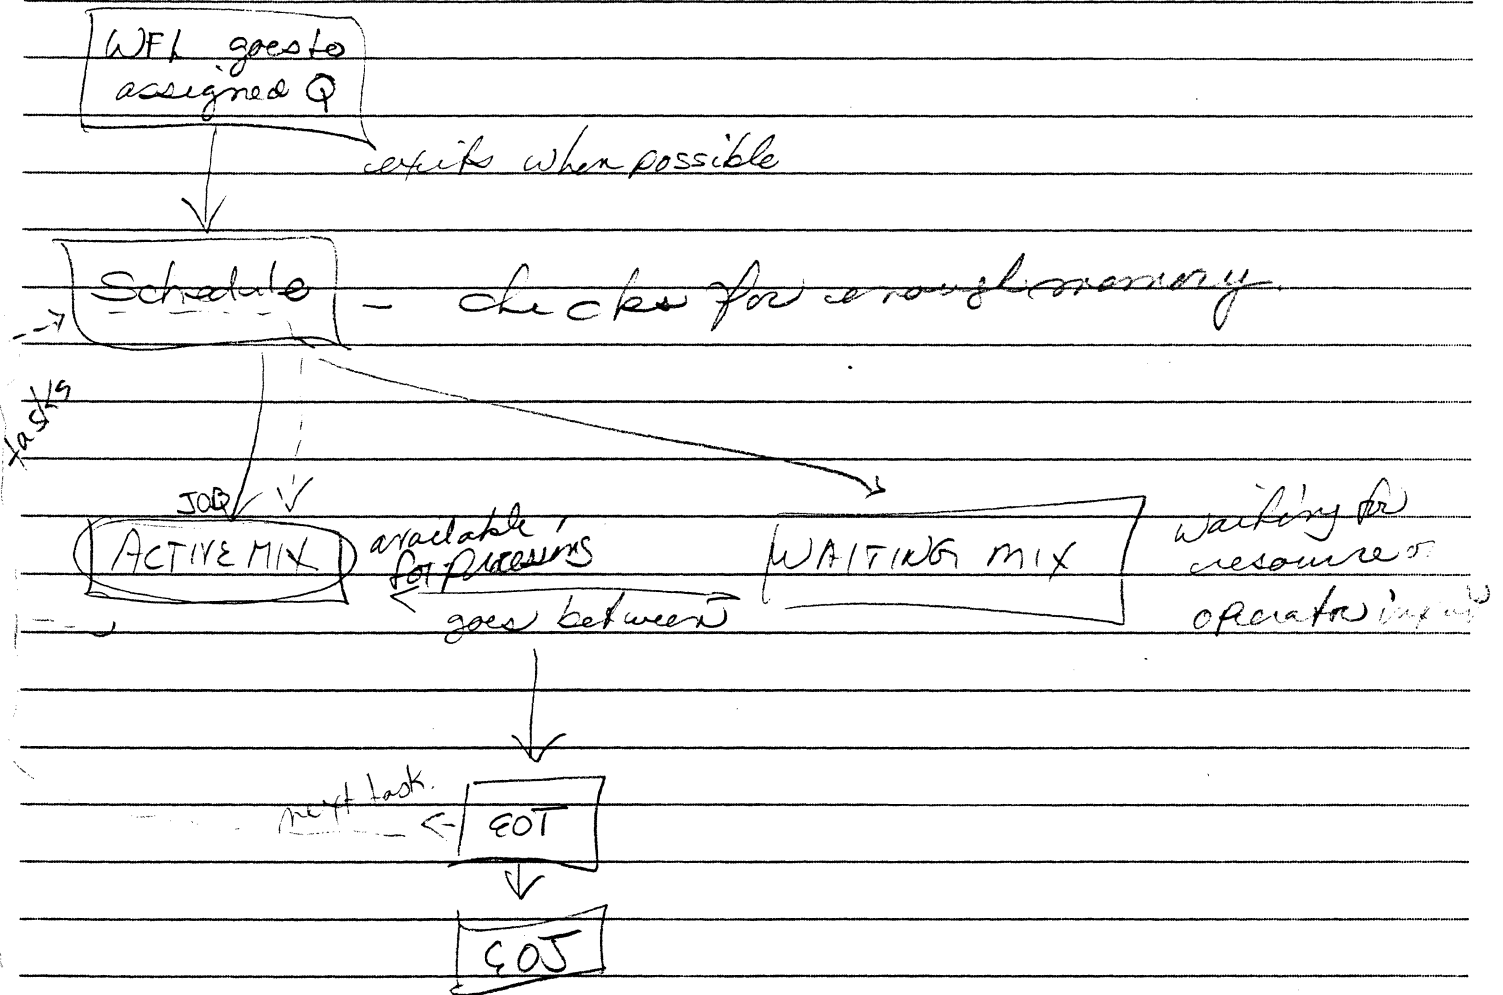 WFL goes to
assigned Q
exits when possible
Schedule - checks for enough memory.
tasks
JOB
ACTIVE MIX
available
for processing
goes between
WAITING MIX
waiting for
resource or
operator input
next task.
EOT
EOJ